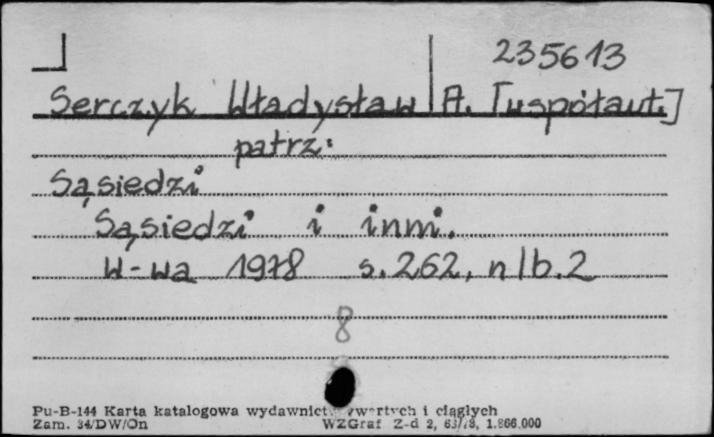 235613
Serczyk Władysław A. [współaut.]
patrz:
Sąsiedzi
Sąsiedzi i inni.
W-wa 1978 s. 262, nlb. 2
8
Pu-B-144 Karta katalogowa wydawnictw zwartych i ciągłych
Zam. 34/DW/On WZGraf Z-d 2, 1.866.000